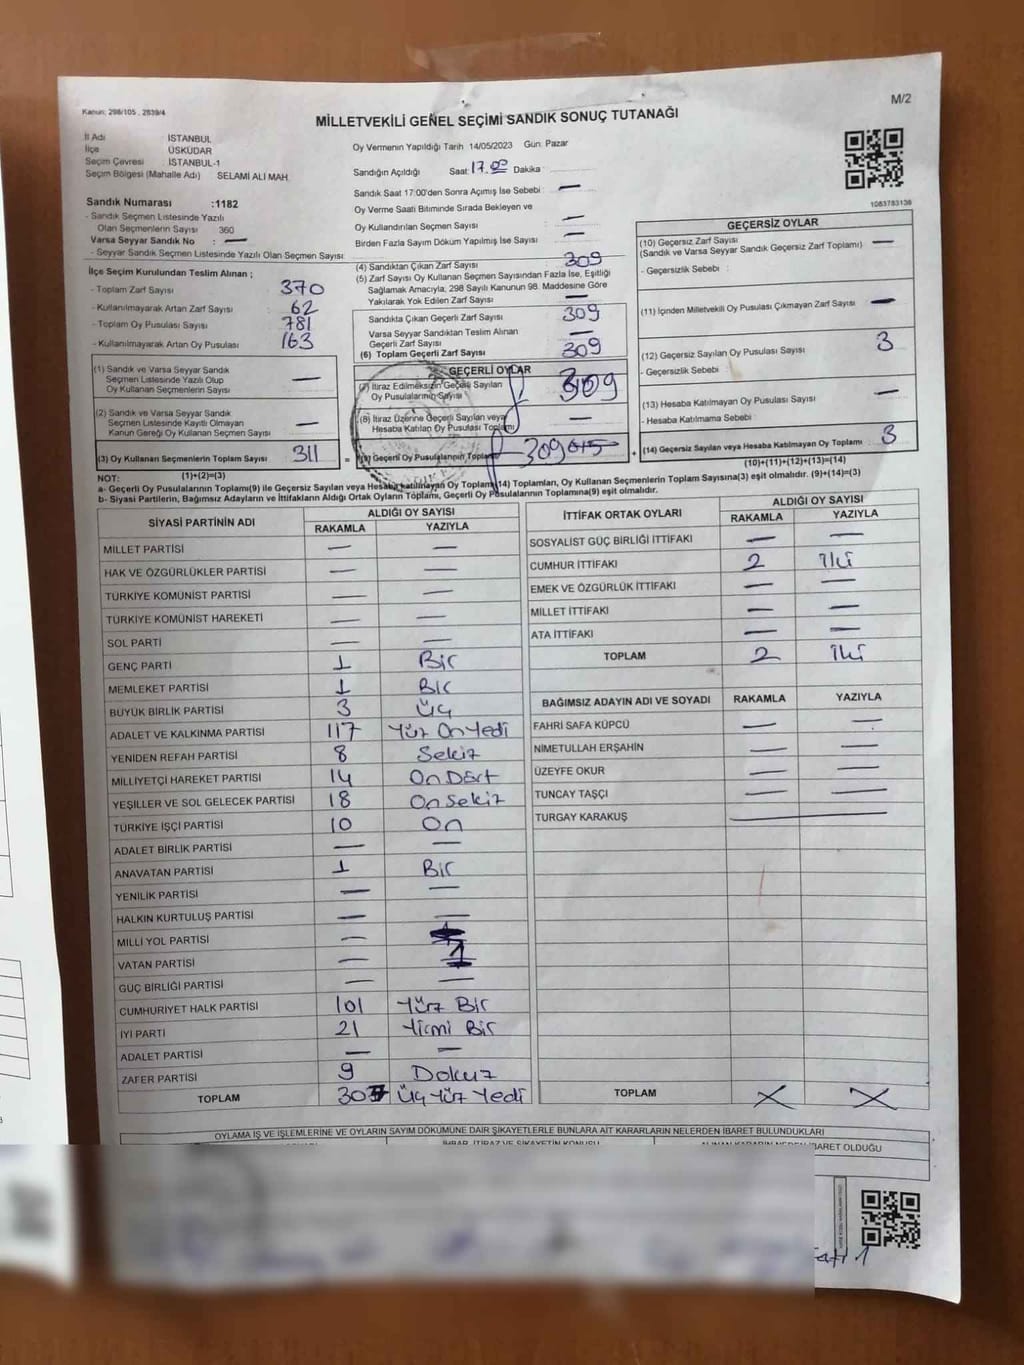 Kanun: 298/105 , 2839/4
M/2
MİLLETVEKİLİ GENEL SEÇİMİ SANDIK SONUÇ TUTANAĞI
İl Adı İSTANBUL
İlçe ÜSKÜDAR
Seçim Çevresi : İSTANBUL-1
Seçim Bölgesi (Mahalle Adı) SELAMİ ALİ MAH.
Sandık Numarası :1182
- Sandık Seçmen Listesinde Yazılı
Olan Seçmenlerin Sayısı 360
Varsa Seyyar Sandık No : —
- Seyyar Sandık Seçmen Listesinde Yazılı Olan Seçmen Sayısı:
Oy Vermenin Yapıldığı Tarih 14/05/2023 Gün: Pazar
Sandığın Açıldığı Saat: 17.00 Dakika
Sandık Saat 17:00'den Sonra Açımış İse Sebebi : —
Oy Verme Saati Bitiminde Sırada Bekleyen ve
Oy Kullandırılan Seçmen Sayısı : —
Birden Fazla Sayım Döküm Yapılmış İse Sayısı : —
1083783136
İlçe Seçim Kurulundan Teslim Alınan ;
- Toplam Zarf Sayısı : 370
- Kullanılmayarak Artan Zarf Sayısı : 62
- Toplam Oy Pusulası Sayısı : 781
- Kullanılmayarak Artan Oy Pusulası : 163
(1) Sandık ve Varsa Seyyar Sandık
Seçmen Listesinde Yazılı Olup
Oy Kullanan Seçmenlerin Sayısı —
(2) Sandık ve Varsa Seyyar Sandık
Seçmen Listesinde Kayıtlı Olmayan
Kanun Gereği Oy Kullanan Seçmen Sayısı —
(3) Oy Kullanan Seçmenlerin Toplam Sayısı 311
(1)+(2)=(3)
(4) Sandıktan Çıkan Zarf Sayısı : 309
(5) Zarf Sayısı Oy Kullanan Seçmen Sayısından Fazla İse, Eşitliği
Sağlamak Amacıyla, 298 Sayılı Kanunun 98. Maddesine Göre
Yakılarak Yok Edilen Zarf Sayısı : —
Sandıkta Çıkan Geçerli Zarf Sayısı : 309
Varsa Seyyar Sandıktan Teslim Alınan
Geçerli Zarf Sayısı : —
(6) Toplam Geçerli Zarf Sayısı : 309
GEÇERLİ OYLAR
(7) İtiraz Edilmeksizin Geçerli Sayılan
Oy Pusulalarının Sayısı 309
(8) İtiraz Üzerine Geçerli Sayılan veya
Hesaba Katılan Oy Pusulası Toplamı —
= (9) Geçerli Oy Pusulalarının Toplamı 309
GEÇERSİZ OYLAR
(10) Geçersiz Zarf Sayısı : —
(Sandık ve Varsa Seyyar Sandık Geçersiz Zarf Toplamı)
- Geçersizlik Sebebi :
(11) İçinden Milletvekili Oy Pusulası Çıkmayan Zarf Sayısı : —
(12) Geçersiz Sayılan Oy Pusulası Sayısı : 3
- Geçersizlik Sebebi :
(13) Hesaba Katılmayan Oy Pusulası Sayısı : —
- Hesaba Katılmama Sebebi :
+ (14) Geçersiz Sayılan veya Hesaba Katılmayan Oy Toplamı : 3
(10)+(11)+(12)+(13)=(14)
NOT:
a- Geçerli Oy Pusulalarının Toplamı(9) ile Geçersiz Sayılan veya Hesaba katılmayan Oy Toplamı(14) Toplamları, Oy Kullanan Seçmenlerin Toplam Sayısına(3) eşit olmalıdır. (9)+(14)=(3)
b- Siyasi Partilerin, Bağımsız Adayların ve İttifakların Aldığı Ortak Oyların Toplamı, Geçerli Oy Pusulalarının Toplamına(9) eşit olmalıdır.
SİYASİ PARTİNİN ADI ALDIĞI OY SAYISI
RAKAMLA YAZIYLA
MİLLET PARTİSİ — —
HAK VE ÖZGÜRLÜKLER PARTİSİ — —
TÜRKİYE KOMÜNİST PARTİSİ — —
TÜRKİYE KOMÜNİST HAREKETİ — —
SOL PARTİ — —
GENÇ PARTİ 1 Bir
MEMLEKET PARTİSİ 1 Bir
BÜYÜK BİRLİK PARTİSİ 3 Üç
ADALET VE KALKINMA PARTİSİ 117 Yüz On Yedi
YENİDEN REFAH PARTİSİ 8 Sekiz
MİLLİYETÇİ HAREKET PARTİSİ 14 On Dört
YEŞİLLER VE SOL GELECEK PARTİSİ 18 On Sekiz
TÜRKİYE İŞÇİ PARTİSİ 10 On
ADALET BİRLİK PARTİSİ — —
ANAVATAN PARTİSİ 1 Bir
YENİLİK PARTİSİ — —
HALKIN KURTULUŞ PARTİSİ — —
MİLLİ YOL PARTİSİ —
VATAN PARTİSİ —
GÜÇ BİRLİĞİ PARTİSİ — —
CUMHURİYET HALK PARTİSİ 101 Yüz Bir
İYİ PARTİ 21 Yirmi Bir
ADALET PARTİSİ — —
ZAFER PARTİSİ 9 Dokuz
TOPLAM 307 Üç Yüz Yedi
İTTİFAK ORTAK OYLARI ALDIĞI OY SAYISI
RAKAMLA YAZIYLA
SOSYALİST GÜÇ BİRLİĞİ İTTİFAKI — —
CUMHUR İTTİFAKI 2 İki
EMEK VE ÖZGÜRLÜK İTTİFAKI — —
MİLLET İTTİFAKI — —
ATA İTTİFAKI — —
TOPLAM 2 İki
BAĞIMSIZ ADAYIN ADI VE SOYADI RAKAMLA YAZIYLA
FAHRİ SAFA KÜPCÜ — —
NİMETULLAH ERŞAHİN — —
ÜZEYFE OKUR — —
TUNCAY TAŞÇI — —
TURGAY KARAKUŞ —
TOPLAM X X
OYLAMA İŞ VE İŞLEMLERİNE VE OYLARIN SAYIM DÖKÜMÜNE DAİR ŞİKAYETLERLE BUNLARA AİT KARARLARIN NELERDEN İBARET BULUNDUKLARI
İHBAR, İTİRAZ VE ŞİKAYETİN KONUSU ALINAN KARARIN NEDEN İBARET OLDUĞU